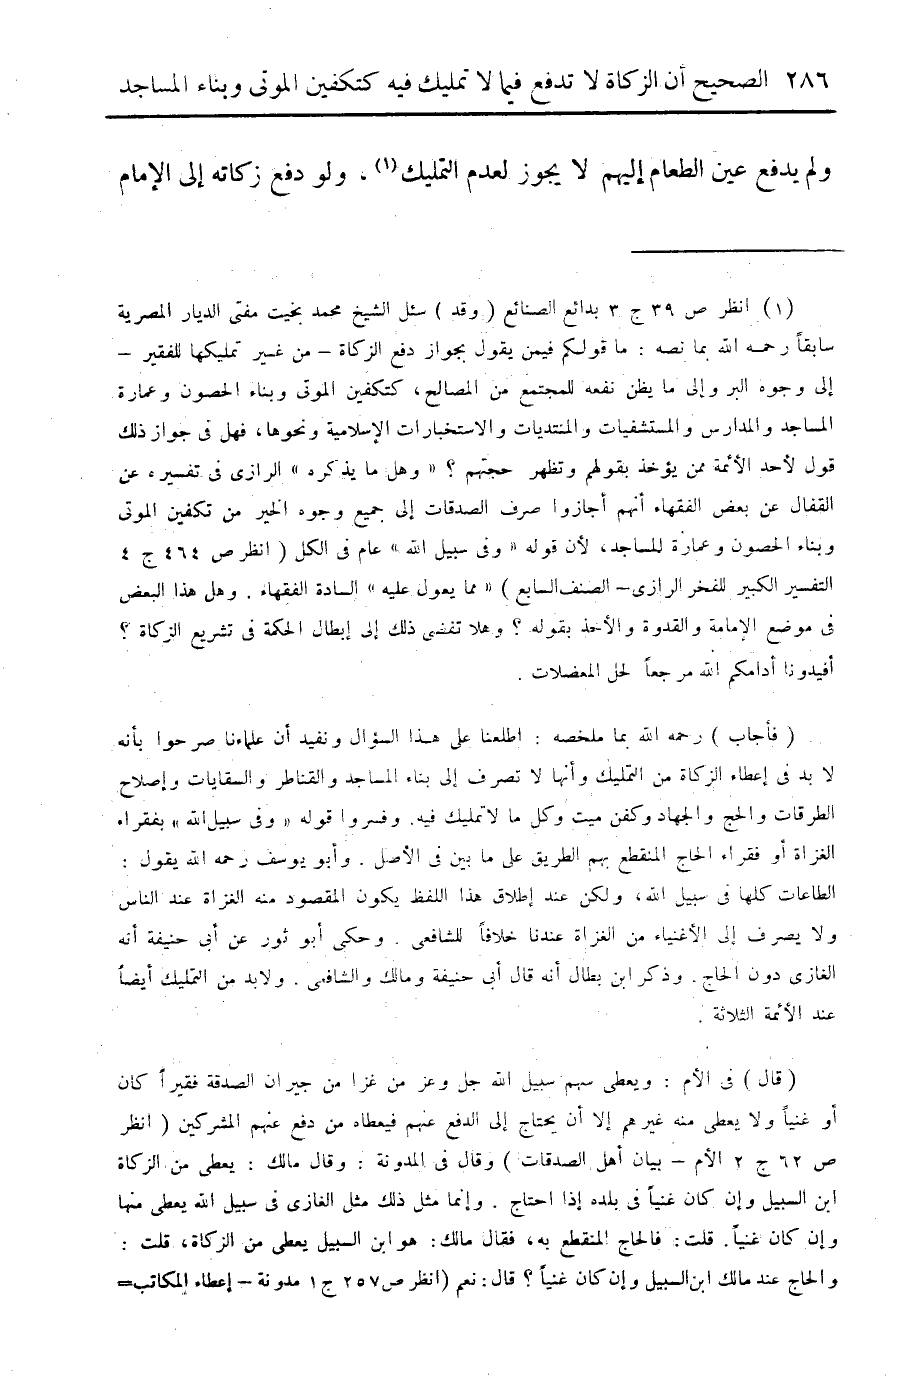 ٢٨٦ الصحيح أن الزكاة لا تدفع فيما لا تمليك فيه كتكفين الموتى وبناء المساجد
ولم يدفع عين الطعام إليهم لا يجوز لعدم التمليك (١) . ولو دفع زكاته إلى الإمام
(١) انظر ص ٣٩ ج ٣ بدائع الصنائع ( وقد ) سئل الشيخ محمد بخيت مفتى الديار المصرية
سابقاً رحمه الله بما نصه : ما قولكم فيمن يقول بجواز دفع الزكاة – من غير تمليكها للفقير –
إلى وجوه البر وإلى ما يظن نفعه للمجتمع من المصالح، كتكفين الموتى وبناء الحصون وعمارة
المساجد والمدارس والمستشفيات والمنتديات والاستخبارات الإسلامية ونحوها، فهل فى جواز ذلك
قول لأحد الأئمة ممن يؤخذ بقولهم وتظهر حجتهم ؟ « وهل ما يذكره » الرازى فى تفسيره عن
القفال عن بعض الفقهاء أنهم أجازوا صرف الصدقات إلى جميع وجوه الخير من تكفين الموتى
وبناء الحصون وعمارة للمساجد، لأن قوله « وفى سبيل الله » عام فى الكل ( انظر ص ٤٦٤ ج ٤
التفسير الكبير للفخر الرازى – الصنف السابع ) « مما يعول عليه » السادة الفقهاء . وهل هذا البعض
فى موضع الإمامة والقدوة والأخذ بقوله ؟ وهلا تفضى ذلك إلى إبطال الحكمة فى تشريع الزكاة ؟
أفيدونا أدامكم الله مرجعاً لحل المعضلات .
( فأجاب ) رحمه الله بما ملخصه : اطلعنا على هذا السؤال ونفيد أن علماءنا صرحوا بأنه
لا بد فى إعطاء الزكاة من التمليك وأنها لا تصرف إلى بناء المساجد والقناطر والسقايات وإصلاح
الطرقات والحج والجهاد وكفن ميت وكل ما لا تمليك فيه. وفسروا قوله « وفى سبيل الله » بفقراء
الغزاة أو فقراء الحاج المنقطع بهم الطريق على ما بين فى الأصل . وأبو يوسف رحمه الله يقول :
الطاعات كلها فى سبيل الله، ولكن عند إطلاق هذا اللفظ يكون المقصود منه الغزاة عند الناس
ولا يصرف إلى الأغنياء من الغزاة عندنا خلافاً للشافعى . وحكى أبو ثور عن أبى حنيفة أنه
الغازى دون الحاج. وذكر ابن بطال أنه قال أبى حنيفة ومالك والشافعى . ولابد من التمليك أيضاً
عند الأئمة الثلاثة .
( قال ) فى الأم : ويعطى سهم سبيل الله جل وعز من غزا من جيران الصدقة فقيراً كان
أو غنياً ولا يعطى منه غيرهم إلا أن يحتاج إلى الدفع عنهم فيعطاه من دفع عنهم المشركين ( انظر
ص ٦٢ ج ٢ الأم – بيان أهل الصدقات ) وقال فى المدونة : وقال مالك : يعطى من الزكاة
ابن السبيل وإن كان غنياً فى بلده إذا احتاج . وإنما مثل ذلك مثل الغازى فى سبيل الله يعطى منها
وإن كان غنياً. قلت: فالحاج المنقطع به، فقال مالك: هو ابن السبيل يعطى من الزكاة، قلت :
والحاج عند مالك ابن السبيل وإن كان غنياً ؟ قال: نعم (انظر ص ٢٥٧ ج ١ مدونة – إعطاء المكاتب=